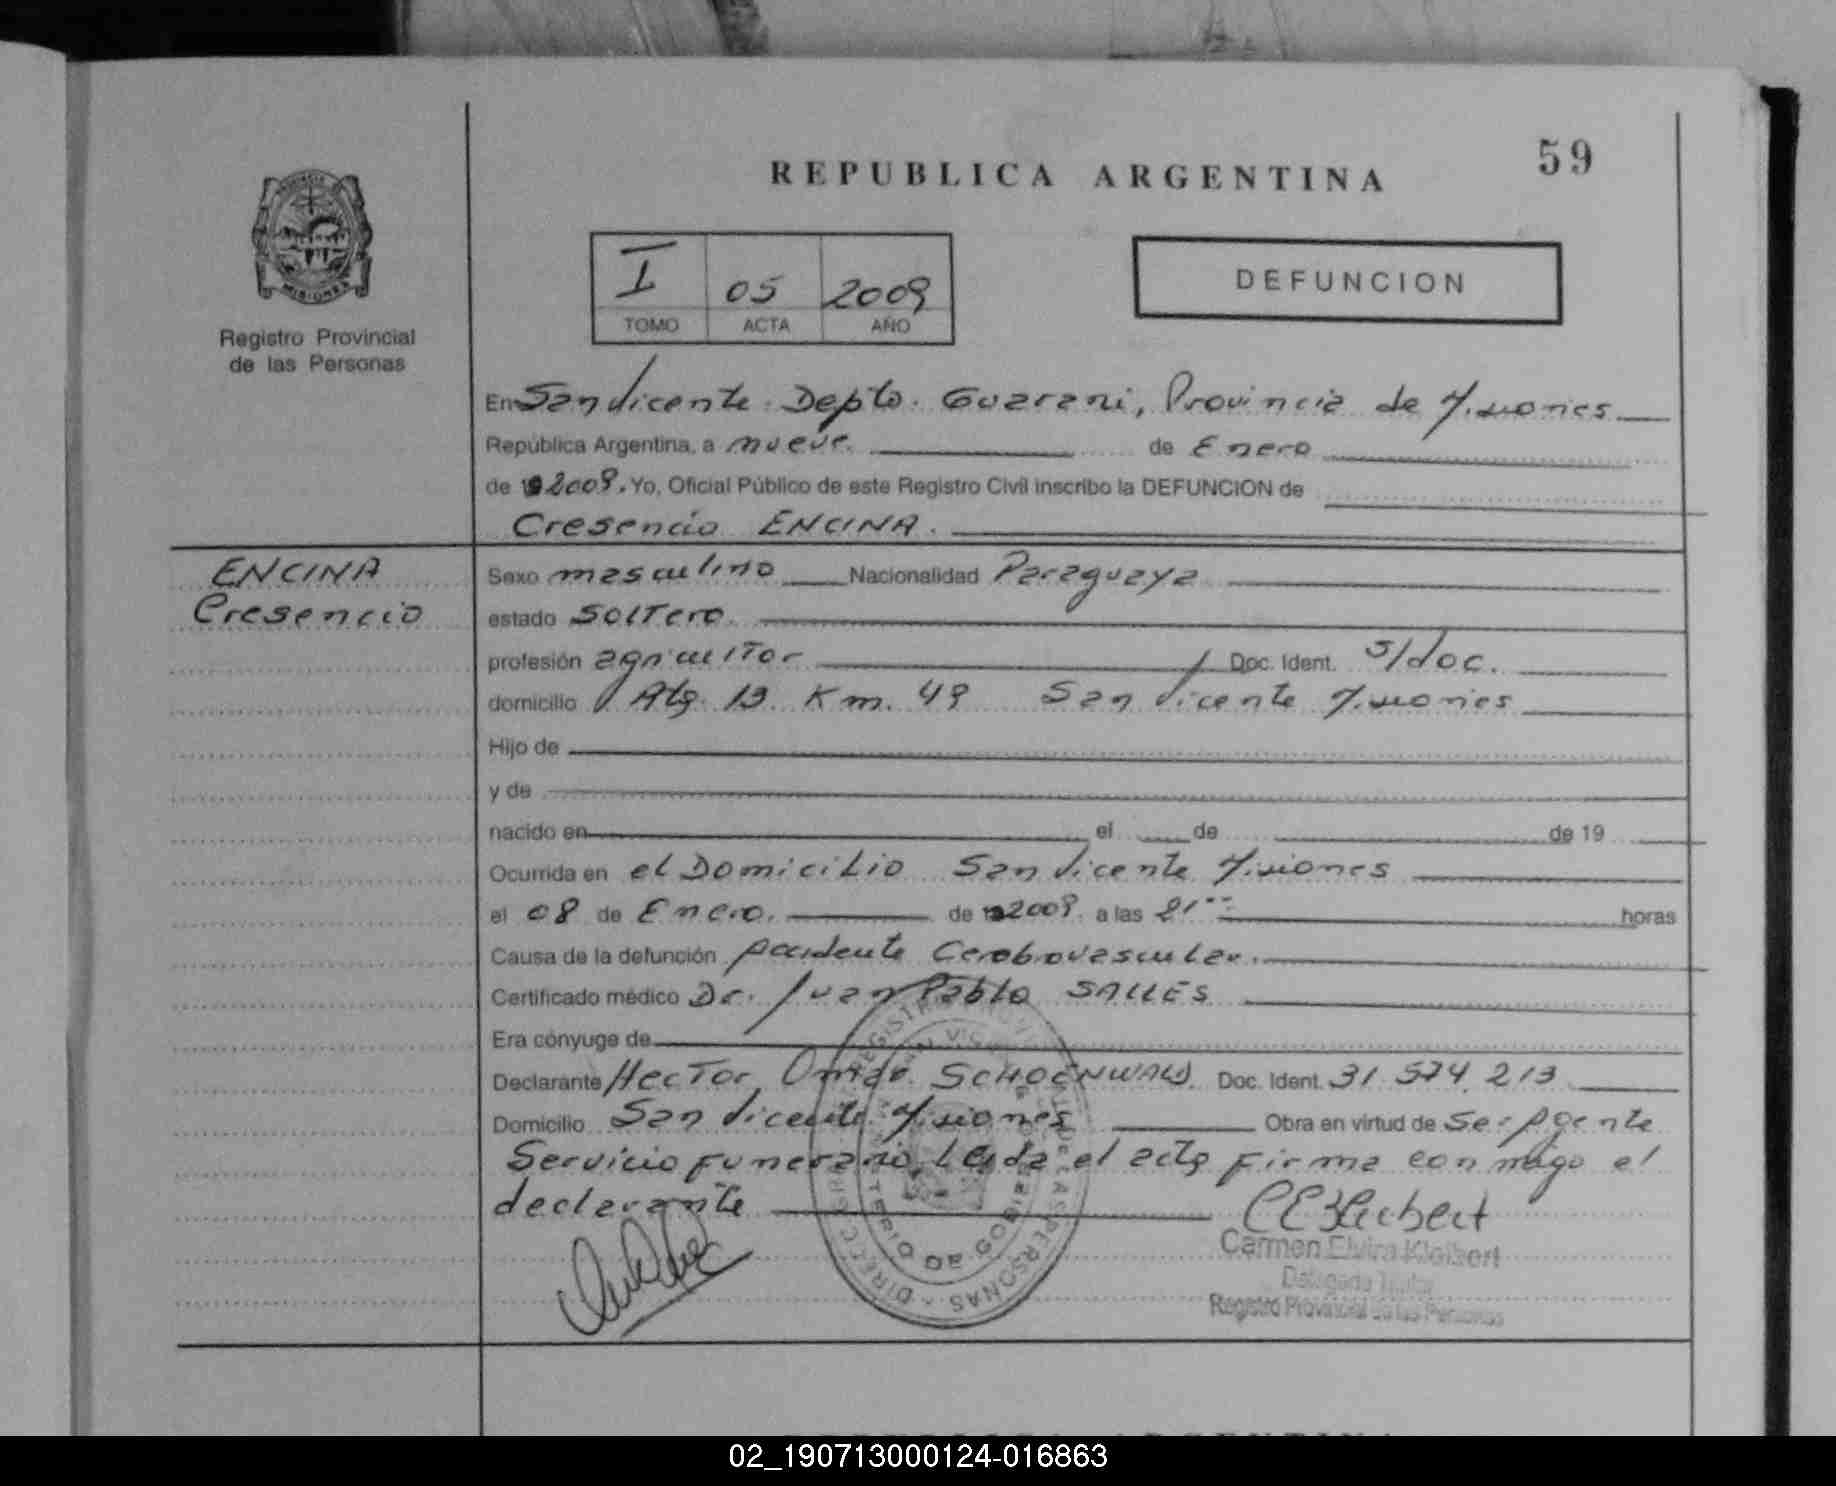 59
REPUBLICA ARGENTINA
PROVINCIA
MISIONES
Registro Provincial
de las Personas
I 05 2009
TOMO ACTA AÑO
DEFUNCION
En San Vicente Depto. Guarani, Provincia de Misiones
República Argentina, a nueve de Enero
de 2009. Yo, Oficial Público de este Registro Civil inscribo la DEFUNCION de
Cresencio ENCINA.
ENCINA
Cresencio
Sexo masculino Nacionalidad Paraguaya
estado Soltero.
profesión agricultor Doc. Ident. S/doc.
domicilio Km. 49 San Vicente Misiones
Hijo de
y de
nacido en el de de 19
Ocurrida en el Domicilio San Vicente Misiones
el 08 de Enero. de 2009. a las 21 horas
Causa de la defunción Accidente Cerebrovascular.
Certificado médico Dr. Juan Pablo SALLES
Era cónyuge de
Declarante Hector Omar SCHOENWALD Doc. Ident. 31.574.213
Domicilio San Vicente Misiones Obra en virtud de Ser Agente
Servicio Funerario, Leida el acta Firma conmigo el
declarante
Carmen Elvira Kleibert
Delegada Titular
Registro Provincial de las Personas
02_190713000124-016863